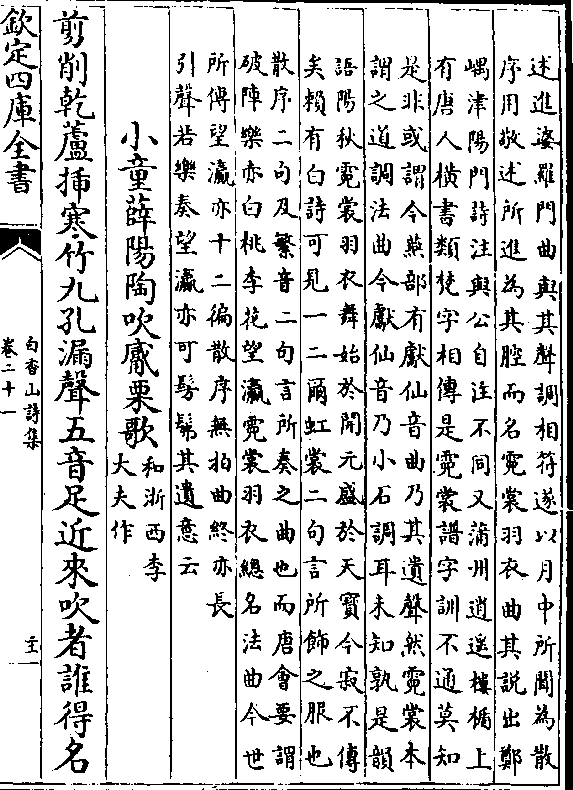 述進婆羅門曲與其聲調相符遂以月中所聞為散
序用敬述所進為其腔而名霓裳羽衣曲其説出鄭
嵎津陽門詩注與公自注不同又蒲州逍遥樓楯上
有唐人横書類梵字相傳是霓裳譜字訓不通莫知
是非或謂今燕部有獻仙音曲乃其遺聲然霓裳本
謂之道調法曲今獻仙音乃小石調耳未知孰是韻
語陽秋霓裳羽衣舞始於開元盛於天寳今寂不傳
矣賴有白詩可見一二爾虹裳二句言所飾之服也
散序二句及繁音二句言所奏之曲也而唐會要謂
破陣樂亦白桃李花望瀛霓裳羽衣總名法曲今世
所傳望瀛亦十二徧散序無拍曲終亦長
引聲若樂奏望瀛亦可髣髴其遺意云
小童薛陽陶吹觱栗歌
和浙西李
大夫作
剪削乾蘆揷寒竹九孔漏聲五音足近來吹者誰得名
欽定四庫全書
白香山詩集
卷二十一